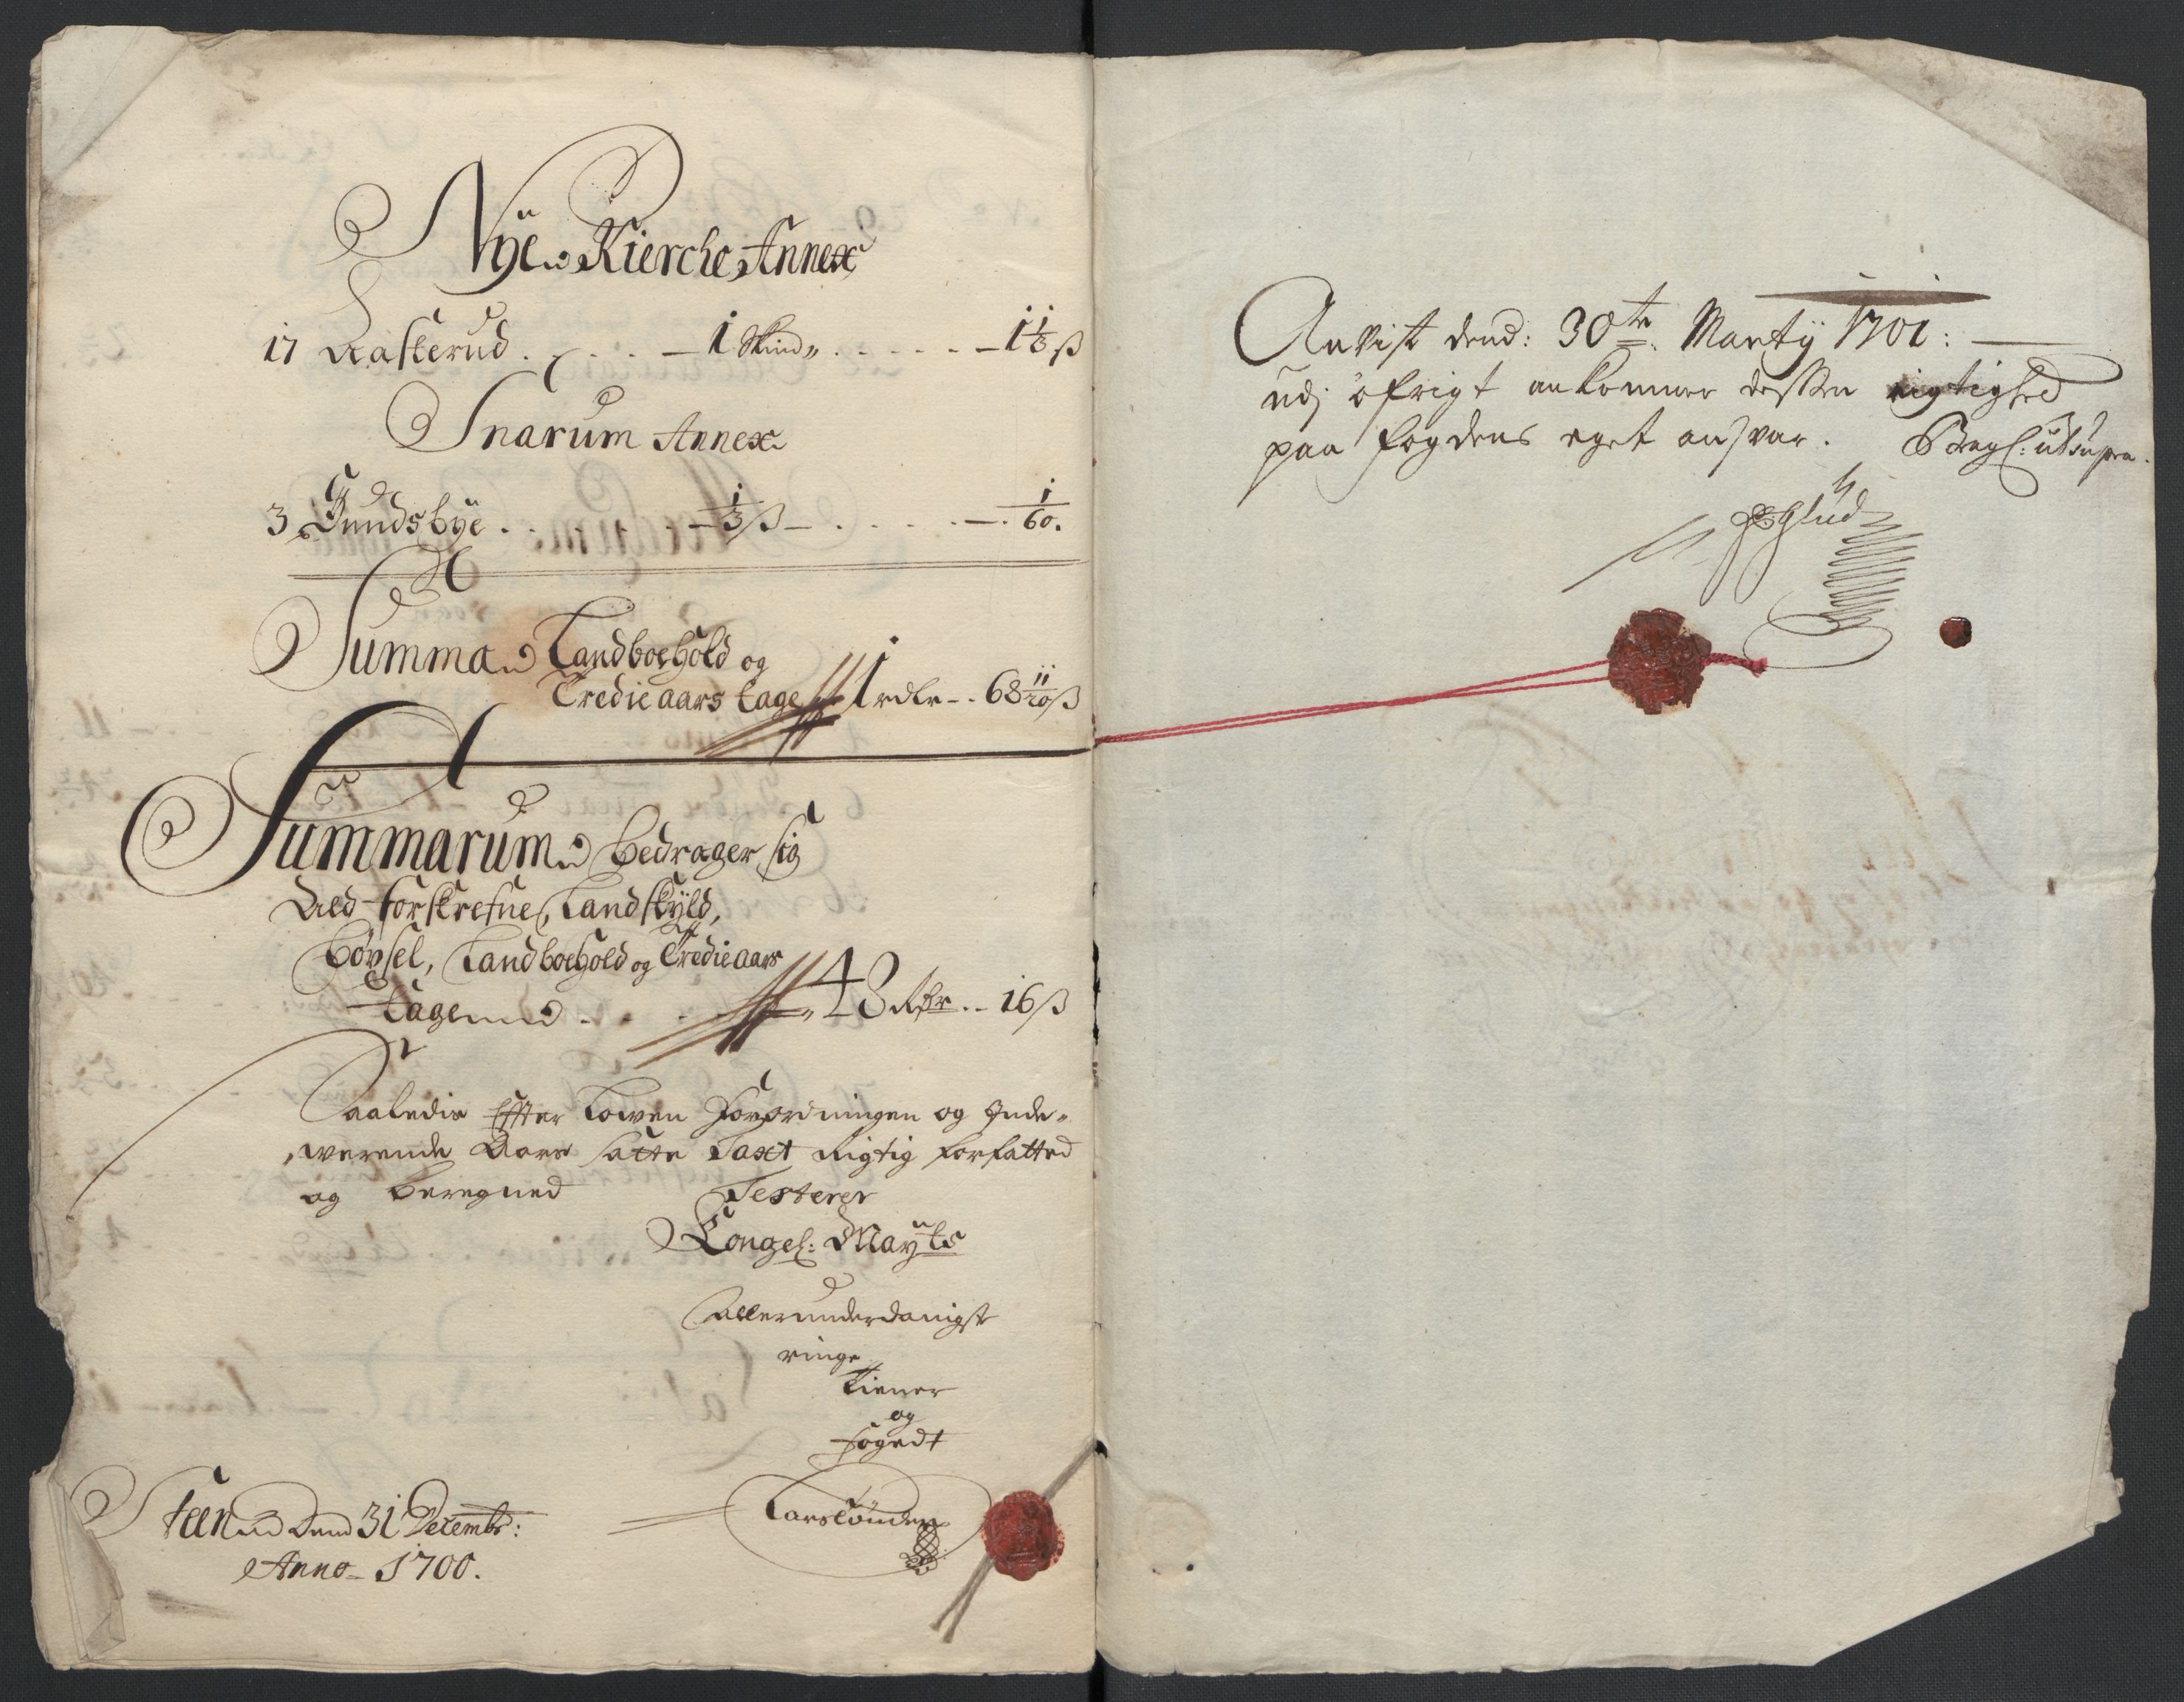 Nÿe Kierche Annex
17 Rasterud . . . . – 1 Skind . . . . . . – 1 1/3 ß
Snarum Annex
3 Gundsbÿe . . . . – 1/3 ß – . . . . . – 1/60.
Summa Landboehold og
Tredie aars tage 1 rdlr – . 68 11/20 ß
Summarum bedrager sig
Ald forskrefne, Landskÿld,
Bøxsel, Landboehold og Tredie aars
Tage . . . 48 Rdr . – 16 ß
Saaledis Effter Lowen Forordningen og Inde-
werende Aars satte Taxt Rigtig forfatted
og beregned Testerer
Kongel: Maÿts
allerunderdanigste
ringe
tiener
og
fogedt
Teen dend 31 Decembr:
Anno 1700.
Anvist dend: 30te Martÿ 1701:
udj öfrigt ankommer dessen rigtighed
paa fogdens eget ansvar. ut supra.
Glud